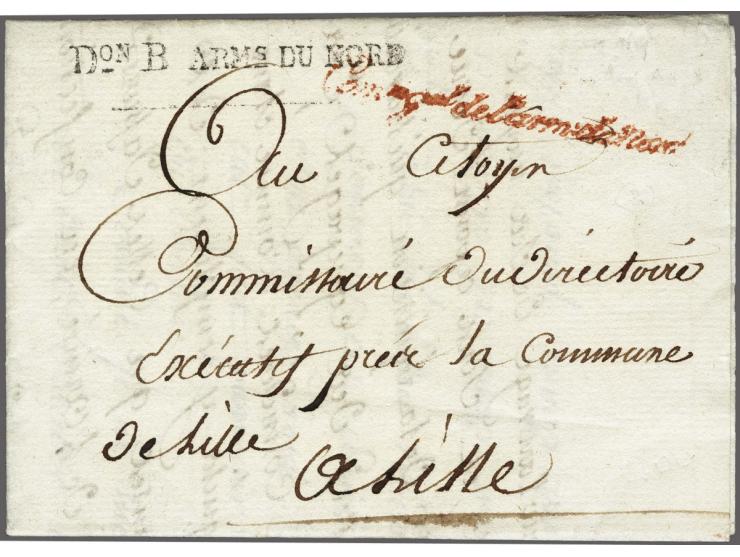 DON B ARMS DU NORD
Com. gal de l'arm. du Nord
Au Citoyen
Commissaire du directoire
Exécutif près la Commune
de Lille
A Lille